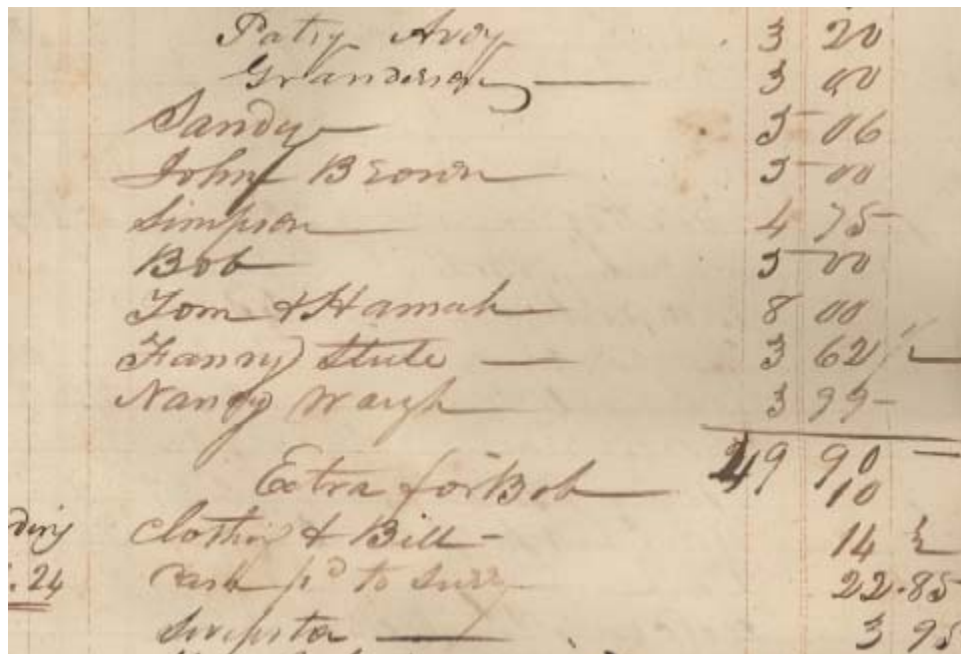 Patsy Avoy 3 20
Granderson — 3 00
Sandy — 5 06
John Brown — 5 00
Simpson — 4 75
Bob — 5 00
Tom & Hannah 8 00
Fanny Stute — 3 62 1/
Nancy Waugh 3 99
49 90
Extra for Bob — 10
ding Clothing & Bill - 14 ½
. 24 Cash pd to 22.85
— 3 95